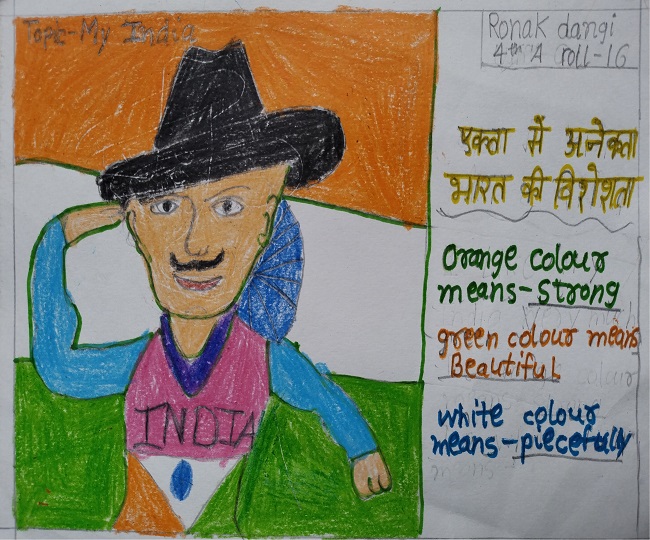 Topic-My India
Ronak dangi
4th A roll-16
एक्ता में अनेक्ता
भारत की विशेशता
Orange colour
means-Strong
green colour means
Beautiful
white colour
means-piecefully
INDIA